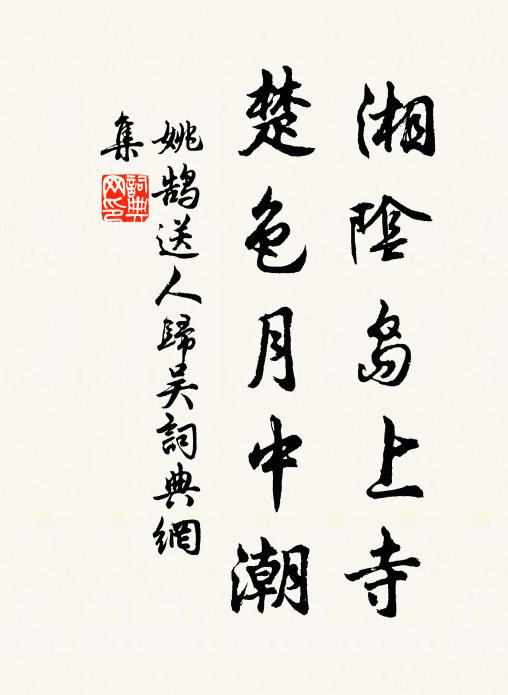 湘陰島上寺
楚色月中潮
姚鵠送人歸吴詞典網
集
詞典网印